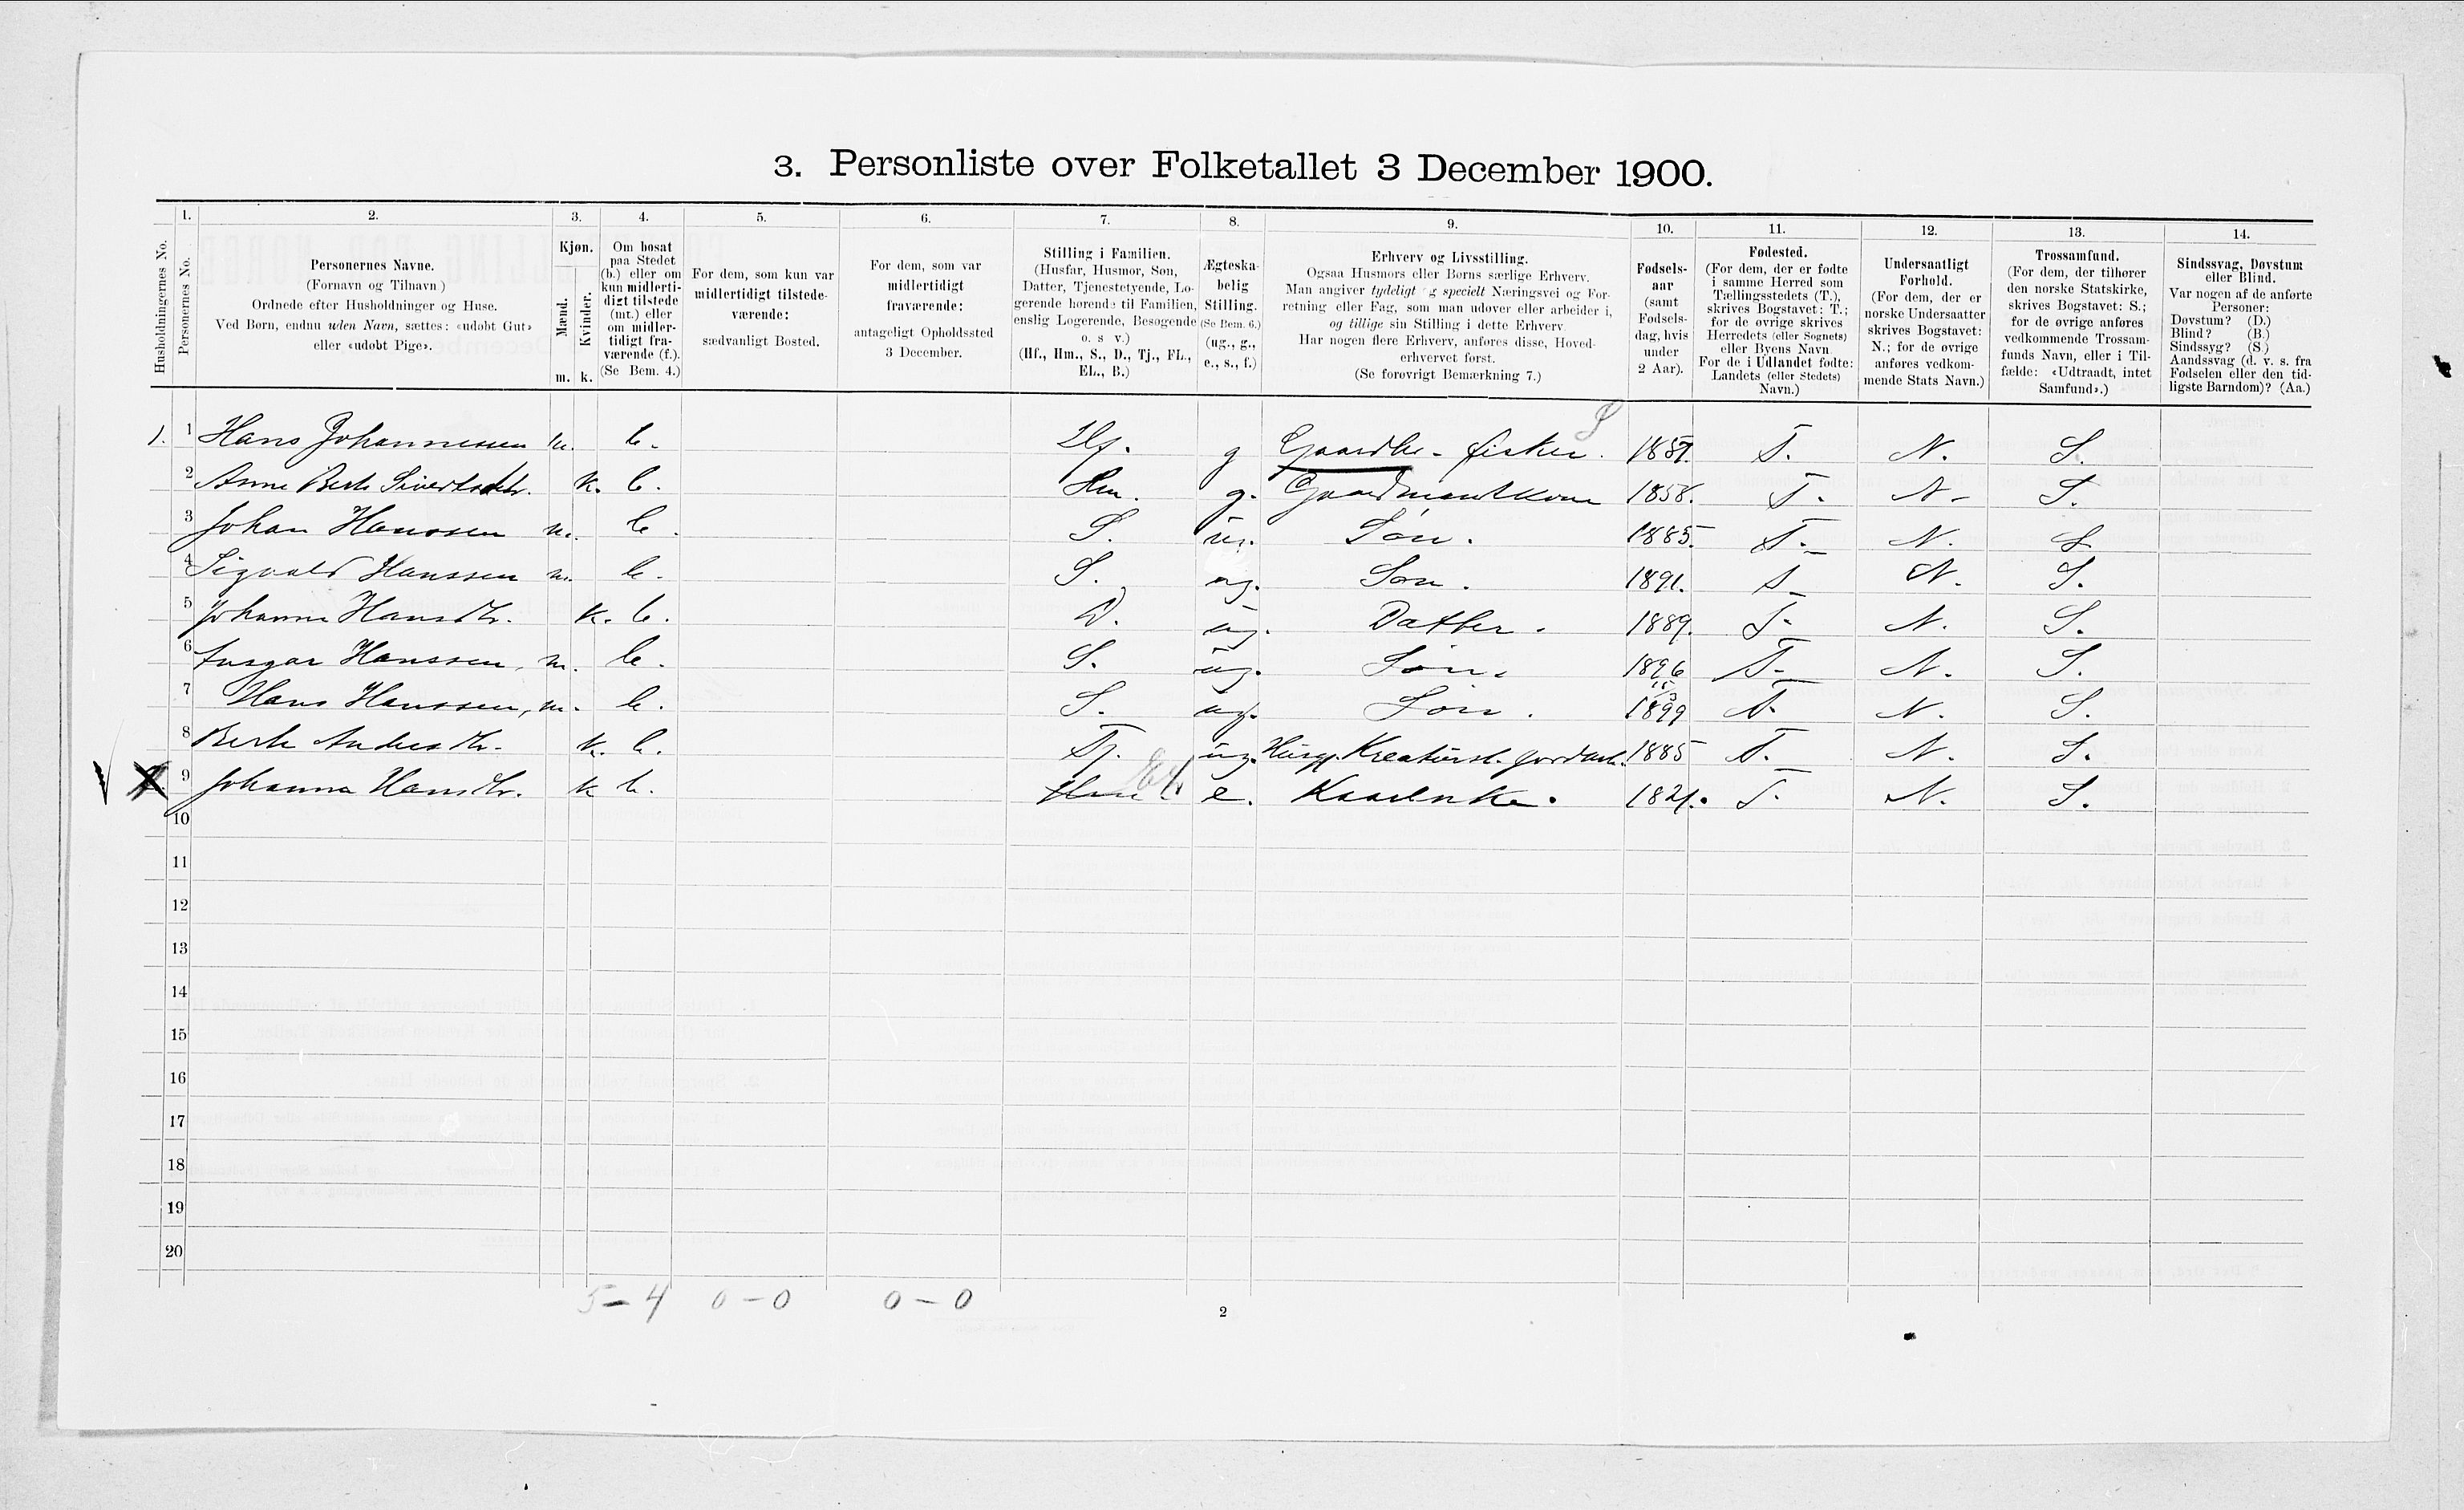 3. Personliste over Folketallet 3 December 1900.
1. 2. 3. 4. 5. 6. 7. 8. 9. 10. 11. 12. 13. 14.
Husholdningernes No.
Personernes No.
Personernes Navne.
(Fornavn og Tilnavn)
Ordnede efter Husholdninger og Huse.
Ved Børn, endnu uden Navn, sættes: «udøbt Gut»
eller «udøbt Pige».
Kjøn.
Mænd.
Kvinder.
m. k.
Om bosat
paa Stedet
(b.) eller om
kun midlerti-
digt tilstede
(mt.) eller
om midler-
tidigt fra-
værende (f.).
(Se Bem. 4.)
For dem, som kun var
midlertidigt tilstede-
værende:
sædvanligt Bosted.
For dem, som var
midlertidigt
fraværende:
antageligt Opholdssted
3 December.
Stilling i Familien.
(Husfar, Husmor, Søn,
Datter, Tjenestetyende, Lo-
gerende hørende til Familien,
enslig Logerende, Besøgende
o. s v.)
(Hf., Hm., S., D., Tj., FL.,
EL., B.)
Ægteska-
belig
Stilling.
(Se Bem. 6.)
(ug., g.,
e., s., f.)
Erhverv og Livsstilling.
Ogsaa Husmors eller Børns særlige Erhverv.
Man angiver tydeligt og specielt Næringsvei og For-
retning eller Fag, som man udøver eller arbeider i,
og tillige sin Stilling i dette Erhverv.
Har nogen flere Erhverv, anføres disse, Hoved-
erhvervet først.
(Se forøvrigt Bemærkning 7.)
Fødsels-
aar
(samt
Fødsels-
dag, hvis
under
2 Aar).
Fødested.
(For dem, der er fødte
i samme Herred som
Tællingsstedets (T.),
skrives Bogstavet: T.;
for de øvrige skrives
Herredets (eller Sognets)
eller Byens Navn.
For de i Udlandet fødte:
Landets (eller Stedets)
Navn.)
Undersaatligt
Forhold.
(For dem, der er
norske Undersaatter
skrives Bogstavet:
N.; for de øvrige
anføres vedkom-
mende Stats Navn.)
Trossamfund.
(For dem, der tilhører
den norske Statskirke,
skrives Bogstavet: S.;
for de øvrige anføres
vedkommende Trossam-
funds Navn, eller i Til-
fælde: «Udtraadt, intet
Samfund».)
Sindssvag, Døvstum
eller Blind.
Var nogen af de anførte
Personer:
Døvstum? (D.)
Blind? (B.)
Sindssyg? (S.)
Aandssvag (d. v. s. fra
Fødselen eller den tid-
ligste Barndom)? (Aa.)
1. 1 Hans Johannessen m. b. Hf. g Gaardbr. - fisker. 1857. T. N. S.
2 Anne Berte Sivertsdtr. k. b. Hm. g. Gaardmandskone 1858. T. N. S.
3 Johan Hanssen m. b. S. ug. Søn. 1885. T. N. S
4 Sigvald Hanssen m. b. S. ug. Søn. 1891. T N. S.
5 Johanne Hansdtr. k. b. D. ug. Datter. 1889. T. N. S.
6 Hanssen, m. b. S. ug. Søn. 1896 T. N. S.
7 Hans Hanssen, m. b. S. ug. Søn. 15/3 1899 T. N. S.
8 Berte Andersdtr. k. b. Tj. ug. Husgj. Kreaturst. Jordarb. 1885 T. N. S.
9 Johanna Hansdtr. k b. El e. Kaarenke. 1821. T. N. S.
10
11
12
13
14
15
16
17
18
19
20
5-4 0-0 0-0
2